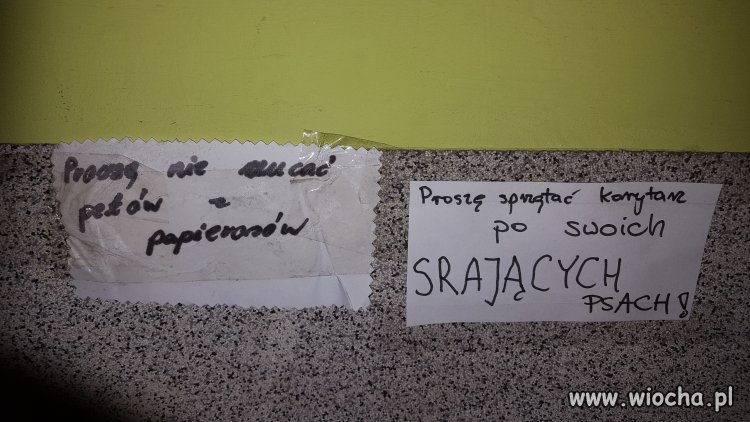 Proszę nie rzucać
petów z
papierosów
Proszę sprzątać korytarz
po swoich
SRAJĄCYCH
PSACH!
www.wiocha.pl